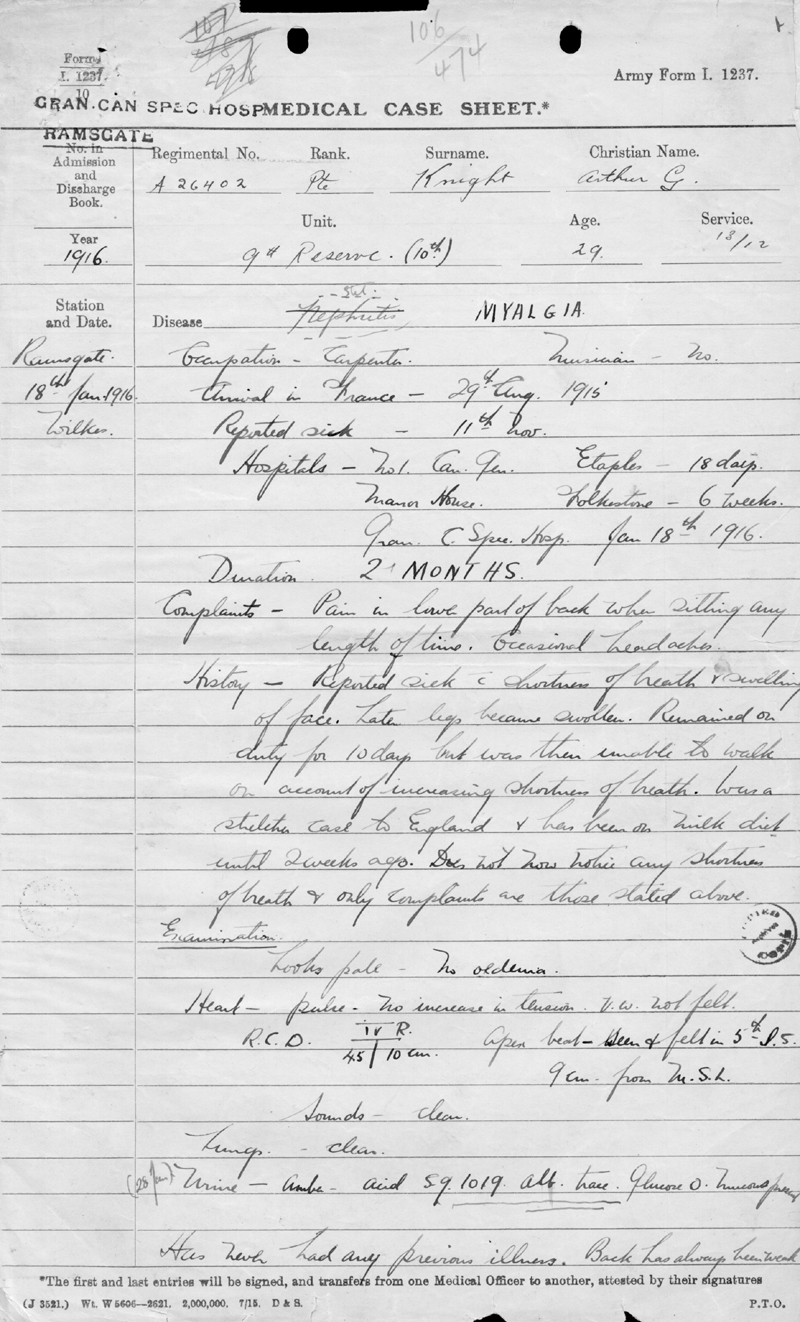 106
474
Form
I. 1237.
10
Army Form I. 1237.
GRAN. CAN SPEC HOSP MEDICAL CASE SHEET.*
RAMSGATE
No. in
Admission
and
Discharge
Book.
Regimental No. Rank. Surname. Christian Name.
A 26402 Pte Knight Arthur G.
Unit. Age. Service.
Year
1916. 9th Reserve. (10th) 29. 13/12
Station
and Date.
Disease Nephritis MYALGIA
Ramsgate. Occupation – Carpenter. Musician – No.
18th Jan. 1916. Arrival in France – 29th Aug. 1915
Wilkes. Reported sick – 11th Nov.
Hospitals – No 1. Can. Gen. Etaples – 18 days.
Manor House. Folkestone – 6 weeks.
Gran. C. Spec. Hosp. Jan 18th 1916.
Duration. 2 MONTHS.
Complaints – Pain in lower part of back when sitting any
length of time. Occasional headaches.
History – Reported sick c shortness of breath & swelling
of face. Later legs became swollen. Remained on
duty for 10 days but was then unable to walk
on account of increasing shortness of breath. Was a
stretcher case to England & has been on milk diet
until 2 weeks ago. Does not now notice any shortness
of breath & only complaints are those stated above.
Examination.
Looks pale – No oedema.
Heart – pulse – No increase in tension. V.W. not felt.
R.C.D. IV R. Apex beat – Seen & felt in 5th I.S.
4.5 | 10 cm.
9 cm. from M.S.L.
Sounds – clear.
Lungs. – clear.
(28 Jan) Urine – Amber – acid Sg. 1019. Alb. trace. Glucose O. Mucous present
Has never had any previous illness. Back has always been weak
*The first and last entries will be signed, and transfers from one Medical Officer to another, attested by their signatures
(J 3521.) Wt. W 5606—2621. 2,000,000. 7/15. D & S. P.T.O.